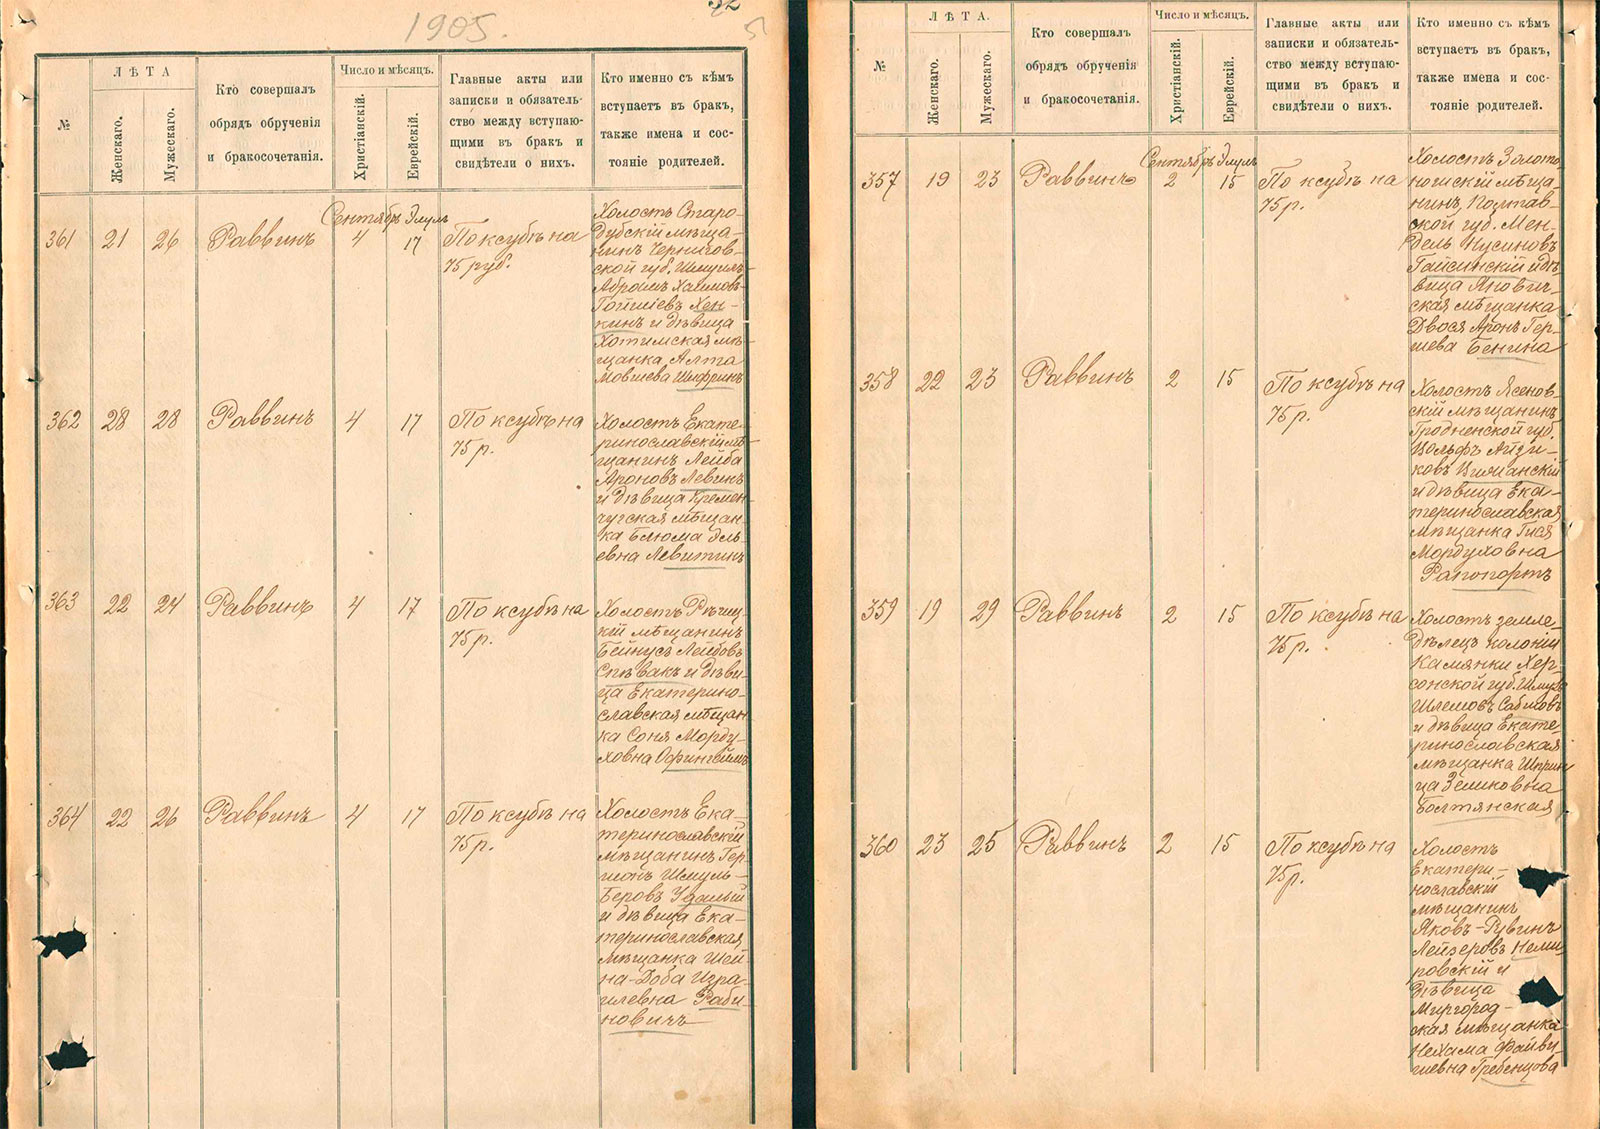 1905.
32
№
ЛѢТА
Женскаго.
Мужескаго.
Кто совершалъ
обрядъ обрученія
и бракосочетанія.
Число и мѣсяцъ.
Христіанскій.
Еврейскій.
Главные акты или
записки и обязатель-
ство между вступаю-
щими въ бракъ и
свидѣтели о нихъ.
Кто именно съ кѣмъ
вступаетъ въ бракъ,
также имена и сос-
тояніе родителей.
Сентябрь Элулъ
361 21 26 Раввинъ 4 17
По ксубѣ на
75 руб.
Холостъ Старо-
дубскій мѣща-
нинъ Чернигов-
ской губ. Шмуилъ-
Абрамъ Хаимовъ-
Гошіевъ Хен-
кинъ и дѣвица
Хотимская мѣ-
щанка Алта
Мовшева Шифринъ
362 28 28 Раввинъ 4 17
По ксубѣ на
75 р.
Холостъ Екате-
ринославскій мѣ-
щанинъ Лейба
Ароновъ Левинъ
и дѣвица Кремен-
чугская мѣщан-
ка Блюма Эль-
евна Левитинъ
363 22 24 Раввинъ 4 17
По ксубѣ на
75 р.
Холостъ Рѣчиц-
кій мѣщанинъ
Бейнусъ Лейбовъ
Спѣвакъ и дѣви-
ца Екатерино-
славская мѣщан-
ка Соня Морду-
ховна Офингеймъ
364 22 26 Раввинъ 4 17
По ксубѣ на
75 р.
Холостъ Ека-
теринославскій
мѣщанинъ Гер-
шонъ Шмуль-
Беровъ Удалый
и дѣвица Ека-
теринославская
мѣщанка Шей-
на-Доба Изра-
илевна Раби-
новичъ
№
ЛѢТА.
Женскаго.
Мужескаго.
Кто совершалъ
обрядъ обрученія
и бракосочетанія.
Число и мѣсяцъ.
Христіанскій.
Еврейскій.
Главные акты или
записки и обязатель-
ство между вступаю-
щими въ бракъ и
свидѣтели о нихъ.
Кто именно съ кѣмъ
вступаетъ въ бракъ,
также имена и сос-
тояніе родителей.
Сентябрь Элулъ
357 19 23 Раввинъ 2 15
По ксубѣ на
75 р.
Холостъ Золото-
ношскій мѣща-
нинъ Полтав-
ской губ. Мен-
дель Нусиновъ
Гайсинскій и дѣ-
вица Янович-
ская мѣщанка
Двося Аронъ Гер-
шева Бенина
358 22 23 Раввинъ 2 15
По ксубѣ на
75 р.
Холостъ Ясенов-
скій мѣщанинъ
Гродненской губ.
Вольфъ Айзи-
ковъ Вилianскій
и дѣвица Ека-
теринославская
мѣщанка Гися
Мордуховна
Рапопортъ
359 19 29 Раввинъ 2 15
По ксубѣ на
75 р.
Холостъ земле-
дѣлецъ колоніи
Камянки Хер-
сонской губ. Шмуль
Шлемовъ Сабшовъ
и дѣвица Екате-
ринославская
мѣщанка Шприн-
ца Зеликовна
Болтянская
360 23 25 Раввинъ 2 15
По ксубѣ на
75 р.
Холостъ
Екатери-
нославскій
мѣщанинъ
Яковъ-Рувинъ
Лейзеровъ Неми-
ровскій и
дѣвица
Миргород-
ская мѣщанка
Нехама Файви-
шевна Гребенцова